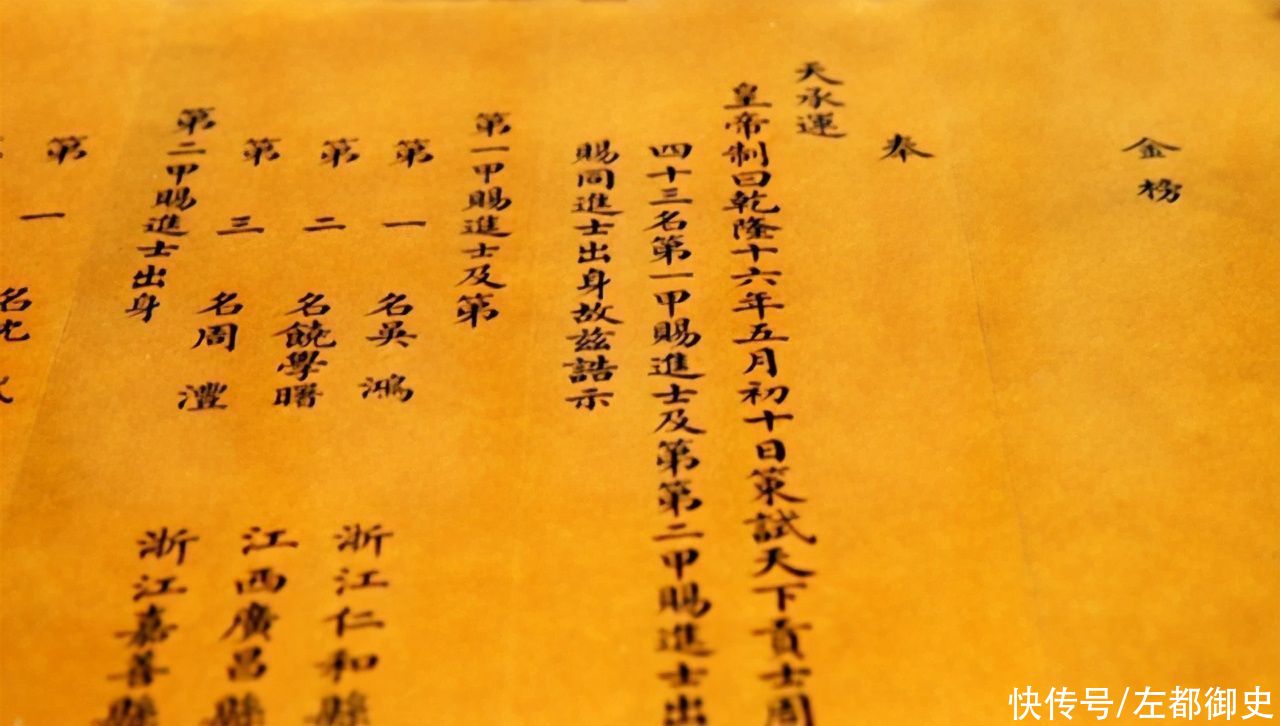 金榜
奉
天承運
皇帝制曰乾隆十六年五月初十日策試天下貢士周
四十三名第一甲賜進士及第第二甲賜進士出
賜同進士出身故茲誥示
第一甲賜進士及第
第一名吳鴻 浙江仁和縣
第二名饒學曙 江西廣昌縣
第三名周灃 浙江嘉善縣
第二甲賜進士出身
第一名沈
快传号/左都御史